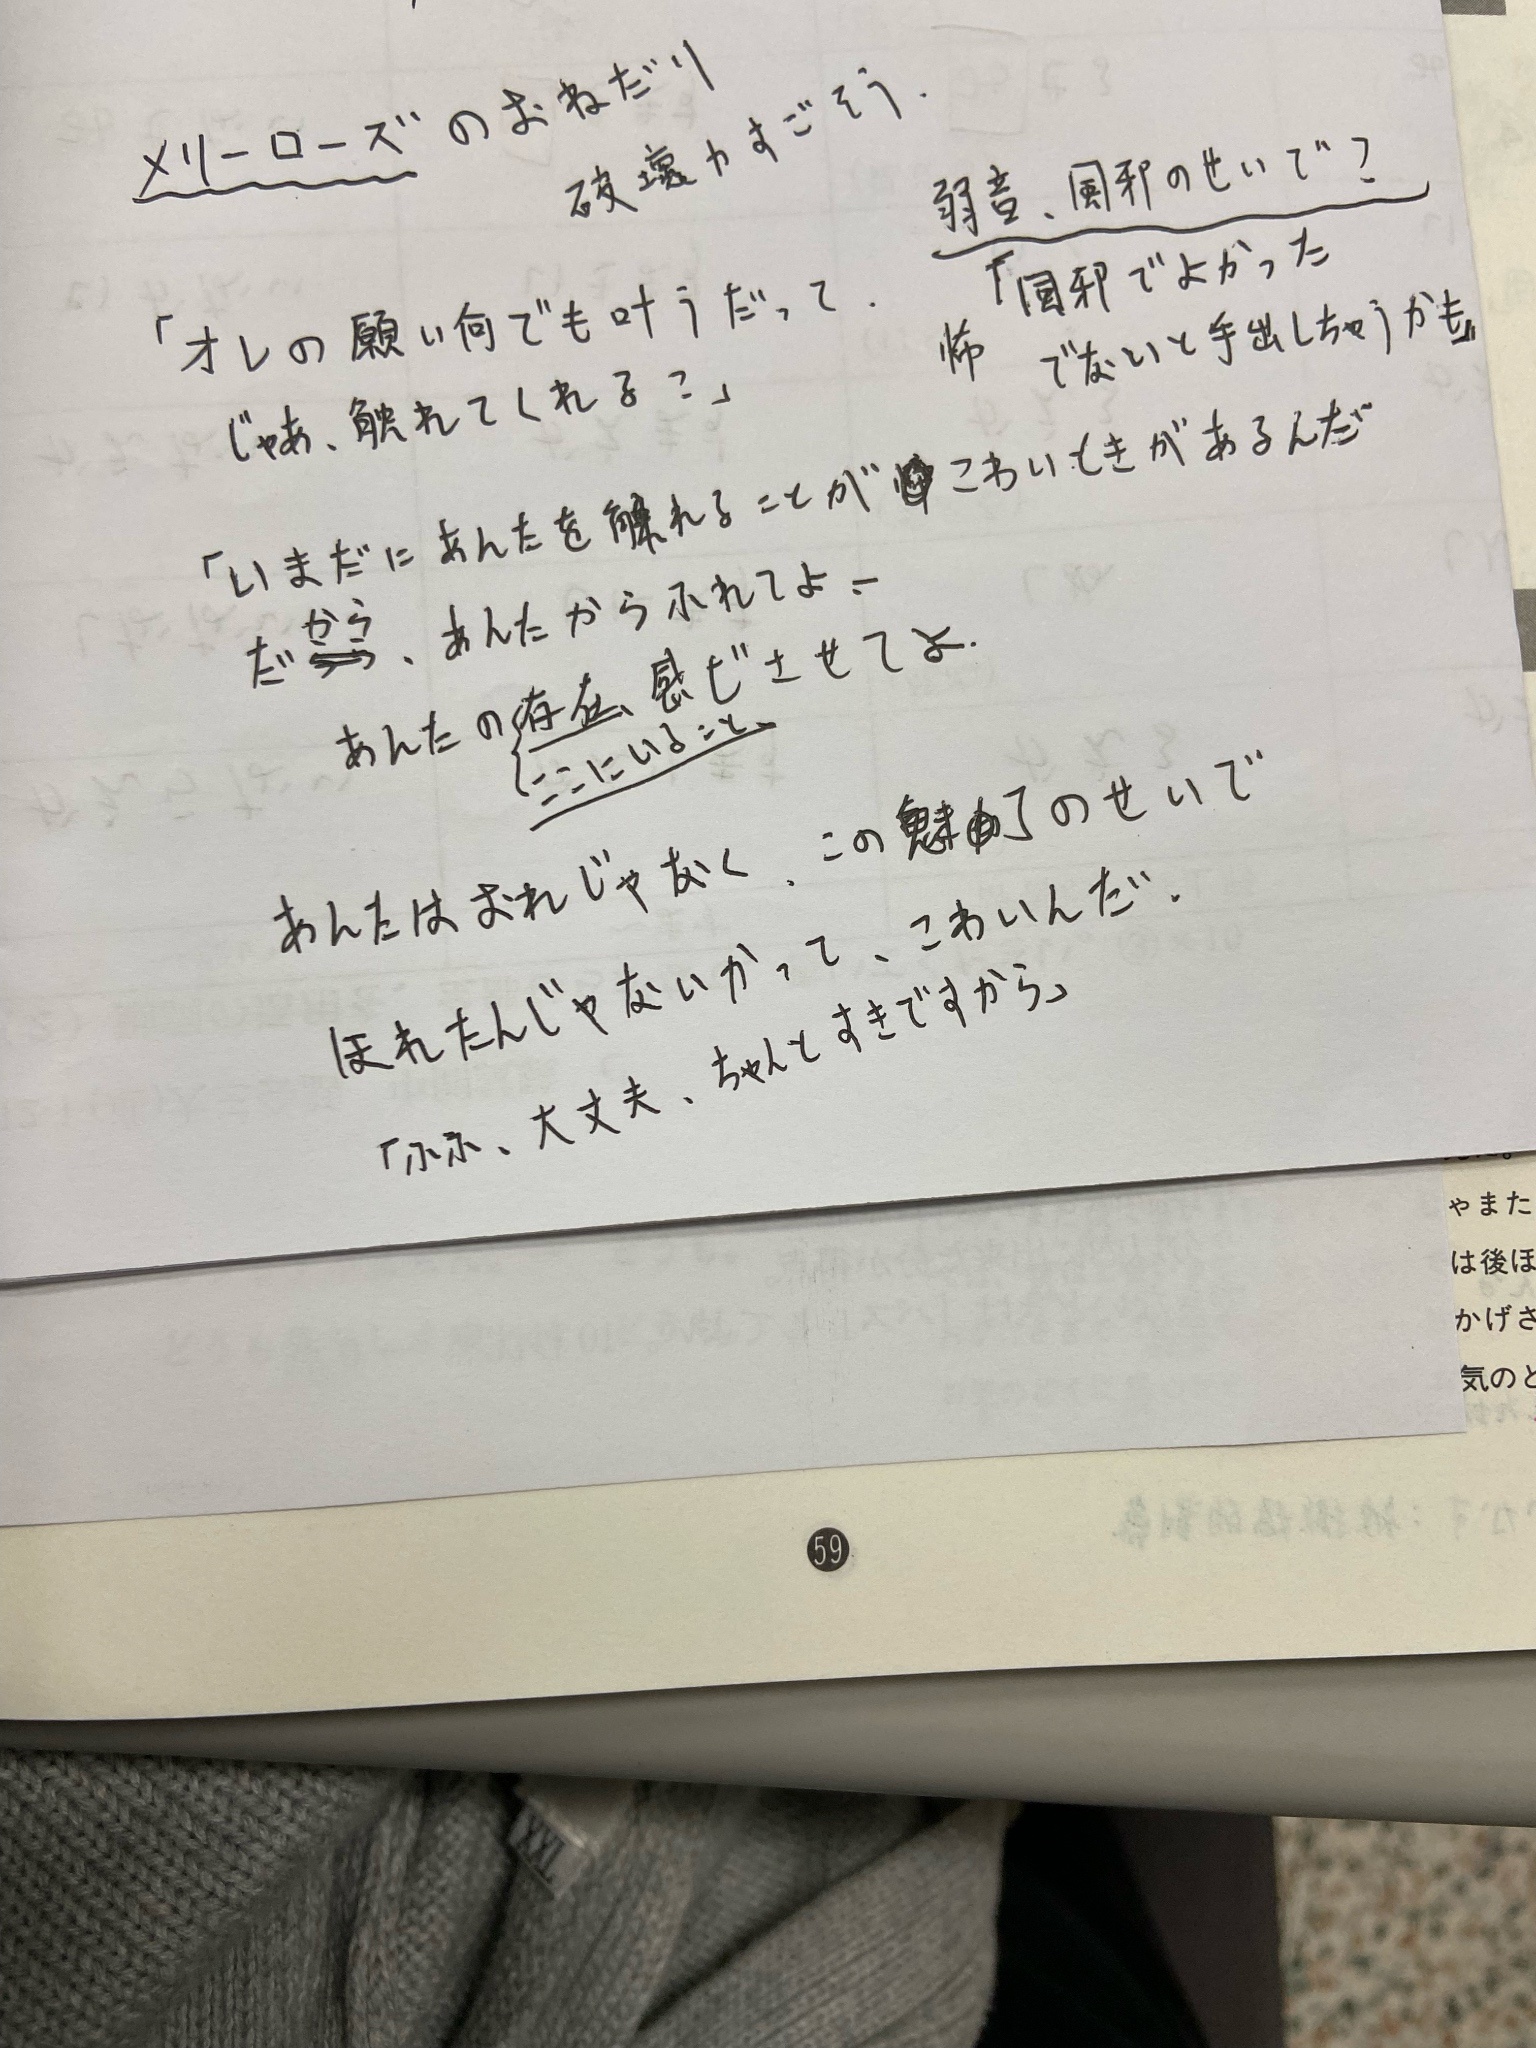 メリーローズのおねだり
破壊力すごそう.
弱音、風邪のせいで?
「風邪でよかった
怖 でないと手出しちゃうかも」
「オレの願い何でも叶うだって.
じゃあ、触れてくれるこ」
「いまだにあんたを触れることがこわいときがあるんだ
だから、あんたからふれてよー
あんたの存在、感じさせてよ.
ここにいること、
あんたはおれじゃなく、この魅了のせいで
ほれたんじゃないかって、こわいんだ.
「ふふ、大丈夫、ちゃんとすきですから」
ゃまた
は後ほ
かげさ
気のと
59